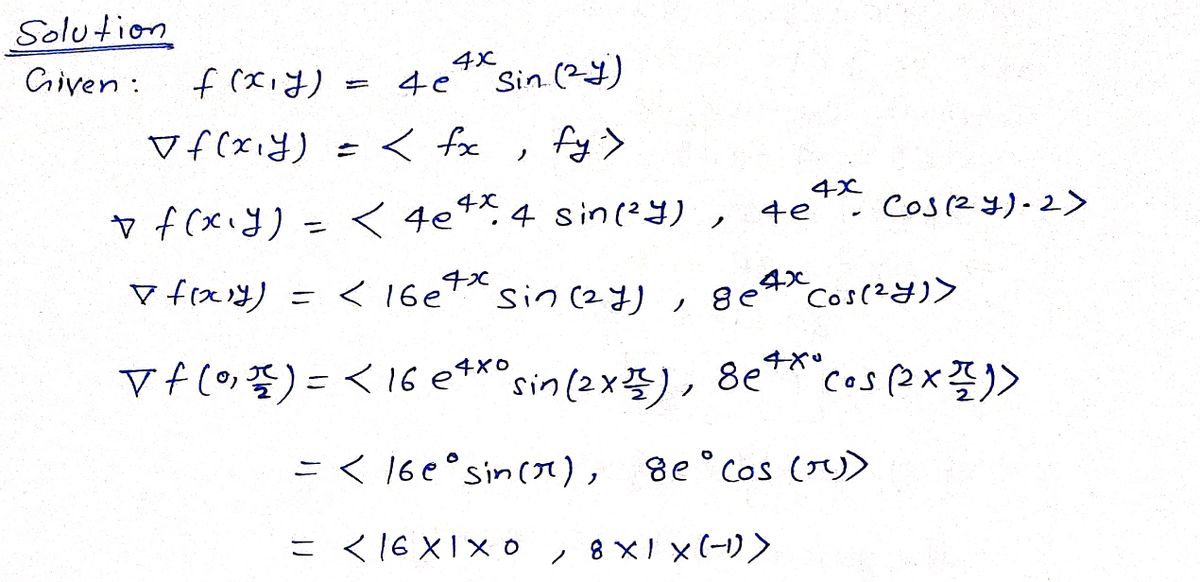 Solution
Given : f(x,y) = 4e^{4x} sin(2y)
∇f(x,y) = < fx , fy >
∇f(x,y) = < 4e^{4x}. 4 sin(2y) , 4e^{4x}. cos(2y).2 >
∇f(x,y) = < 16e^{4x} sin(2y) , 8e^{4x} cos(2y) >
∇f(0, π/2) = < 16 e^{4×0} sin(2×π/2) , 8e^{4×0} cos(2×π/2) >
= < 16e° sin(π) , 8e° cos(π) >
= < 16 × 1 × 0 , 8 × 1 × (-1) >